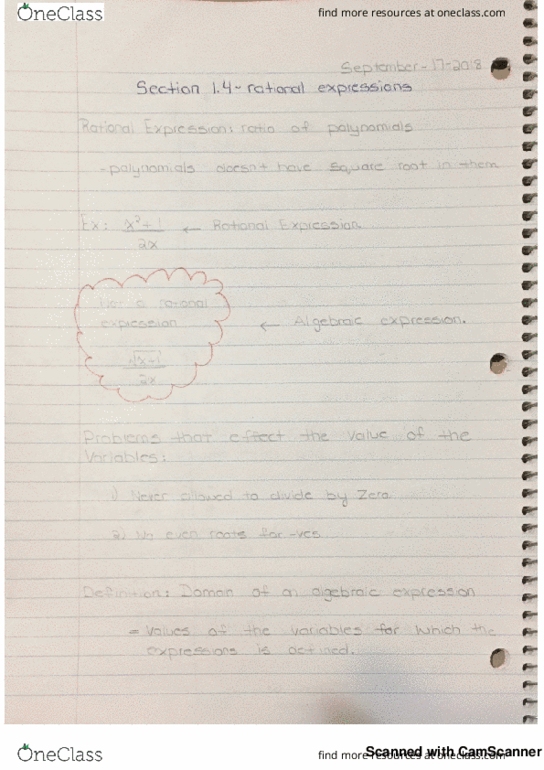 OneClass
find more resources at oneclass.com
September-17-2018
Section 1.4 - rational expressions
Rational Expression: ratio of polynomials
- polynomials doesn't have square root in them
Ex: x²+1 ← Rational Expression.
2x
Not a rational
expression ← Algebraic expression.
√x+1
2x
Problems that effect the value of the
Variables:
1) Never allowed to divide by Zero
2) No even roots for -ves
Definition: Domain of an algebraic expression
= Values of the variables for which the
expressions is defined.
OneClass
find more resources at oneclass.com
Scanned with CamScanner